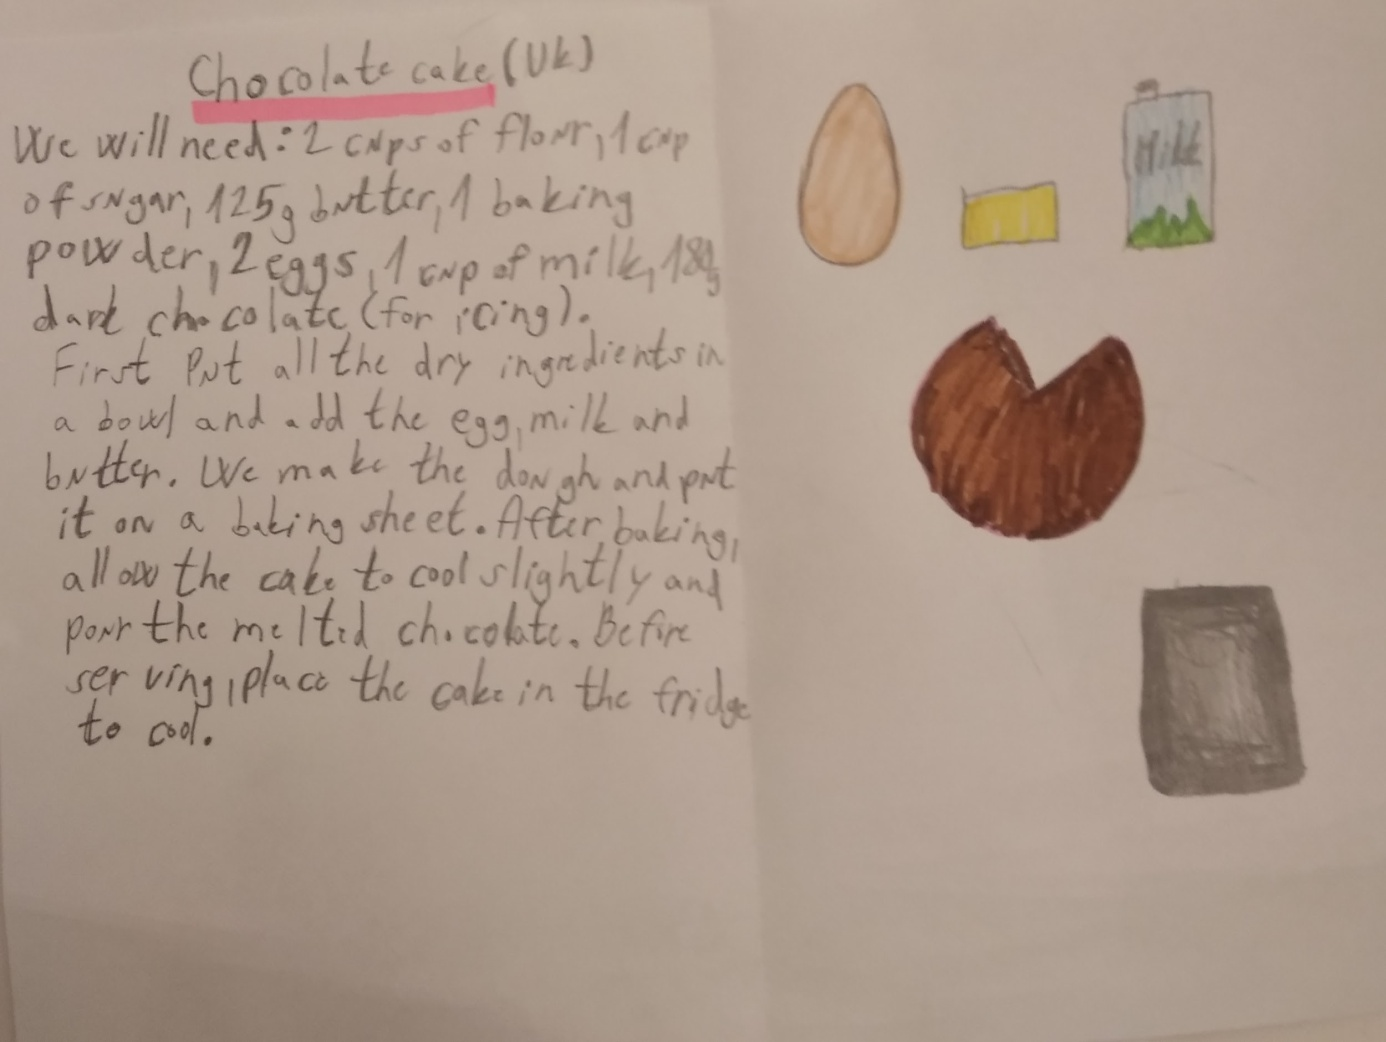 Chocolate cake (Uk)
We will need: 2 cups of flour, 1 cup
of sugar, 125g butter, 1 baking
powder, 2 eggs, 1 cup of milk, 180g
dark chocolate (for icing).
First Put all the dry ingredients in
a bowl and add the egg, milk and
butter. We make the dough and put
it on a baking sheet. After baking,
allow the cake to cool slightly and
pour the melted chocolate. Before
serving, place the cake in the fridge
to cool.
Milk